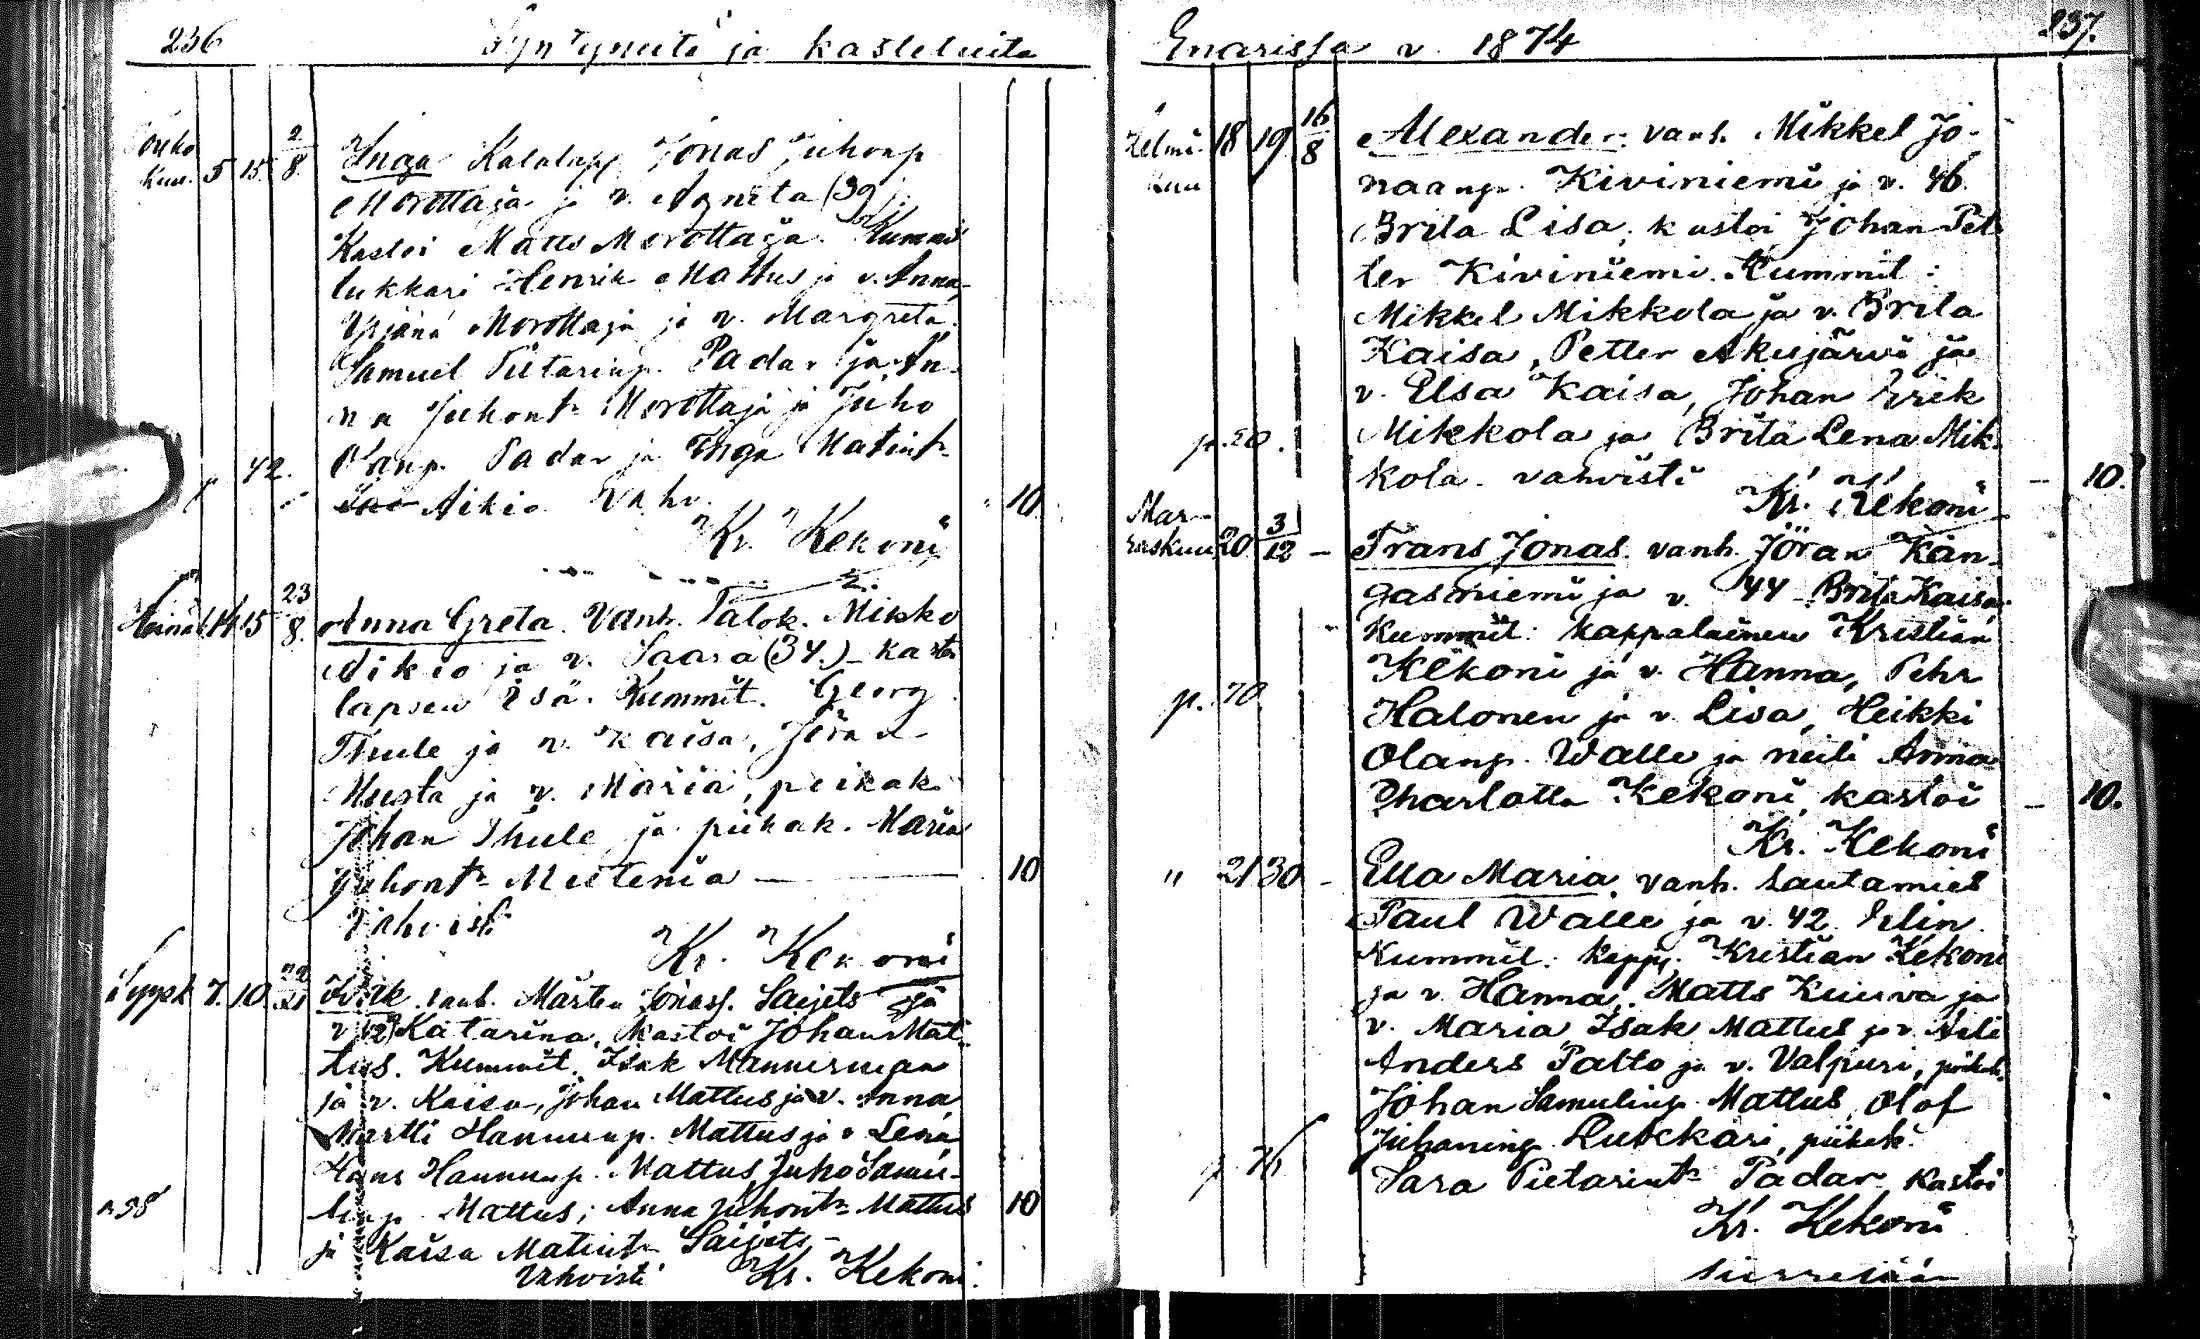 236 Syntyneitä ja kastetuita
Touko
kuu. 5 15 2/8. Inga Kalalapp. Jonas Juhonp
Morottaja ja v. Agneta (39).
Kastoi Matts Morottaja. Kummit
lukkari Henrik Mattus ja v. Anna,
Yrjänä Morottaja ja v. Margreta.
Samuel Pietarinp. Padar ja An-
na Juhont: Morottaja ja Juho
p 42. Olanp. Padar ja Inga Matint:
Aikio Vahv. 10.
Kr. Kekoni
Heinäk 14 15 23/8. Anna Greta. Vanh. Talok. Mikko
Aikio ja v. Saara (34.) – kastoi
lapsen Isä. Kummit. Georg
Thule ja v. Kaisa, Jöran
Musta ja v. Maria, peikak.
Johan Thule ja piikak. Maria
Juhont: Mustenia — 10
Vahvisti
Kr. Kekoni
Syysk 7. 10. 22/21 Erik vanh. Mårten Jonass. Saijets ja
v. Katarina, Kastoi Johan Mat-
tus. Kummit. Isak Mannerman
ja v. Kaisa, Johan Mattus ja v. Anna,
Martti Hannunp. Mattus ja v Lena
Hans Hannunp. Mattus Juho Samu-
p 38 linp. Mattus; Anna Juhont: Mattus 10
ja Kaisa Matint: Saijets –
Vahvisti Kr. Kekoni.
Enarissa v. 1874 237.
Helmi- 18 19 16/8 Alexander: vanh. Mikkel Jo-
kuu naanp. Kiviniemi ja v. 46.
Brita Lisa; kastoi Johan Pet
ter Kiviniemi. Kummit:
Mikkel Mikkola ja v. Brita
Kaisa, Petter Akujärvi ja
v. Elsa Kaisa, Johan Erik
p. 20. Mikkola ja Brita Lena Mik-
kola. vahvisti – 10.
Kr. Kekoni
Mar-
raskuu 20 3/12 – Frans Jonas. vanh. Jöran Kan-
gasniemi ja v. 44 Brita Kaisa.
Kummit: kappalainen Kristian
Kekoni ja v. Hanna, Pehr
p. 70. Halonen ja v. Lisa, Heikki
Olanp. Walle ja neiti Anna
Charlotta Kekoni, kastoi – 10.
Kr. Kekoni
" 21 30 – Ella Maria, vanh. Lautamies
Paul Walle ja v. 42. Elin.
Kummit: Kapp. Kristian Kekoni
ja v. Hanna, Matts Kuuva ja
v. Maria Isak Mattus ja v. Aili
Anders Palto ja v. Valpuri,
Johan Samulinp. Mattus, Olof
Juhaninp Lukkari, piikak.
p. 76 Sara Pietarint: Padar kastoi
Kr. Kekoni
siirretään